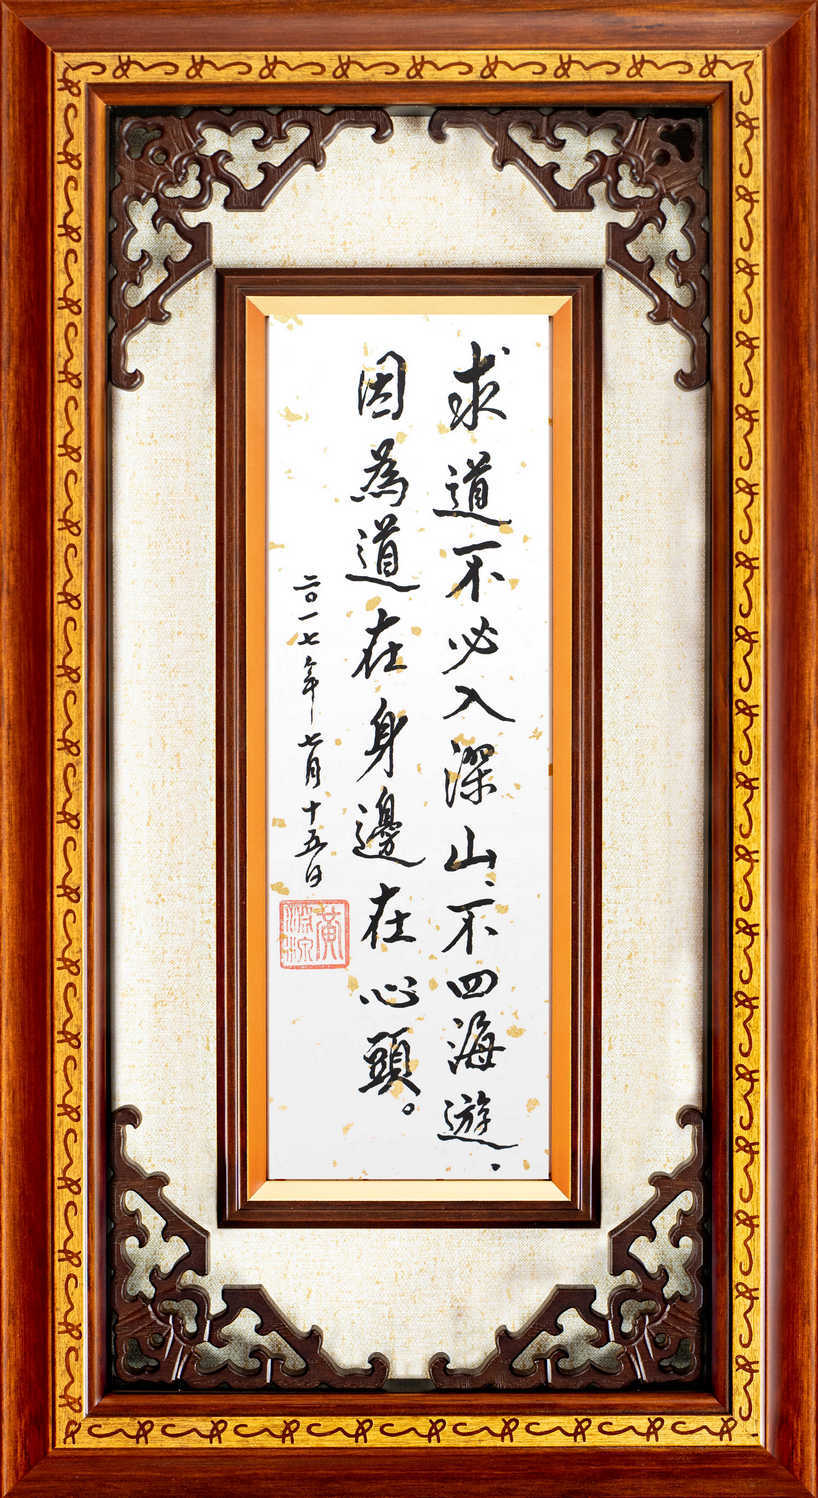 求道不必入深山、不四海遊、
因為道在身邊在心頭。
二〇一七年七月十五日
黃